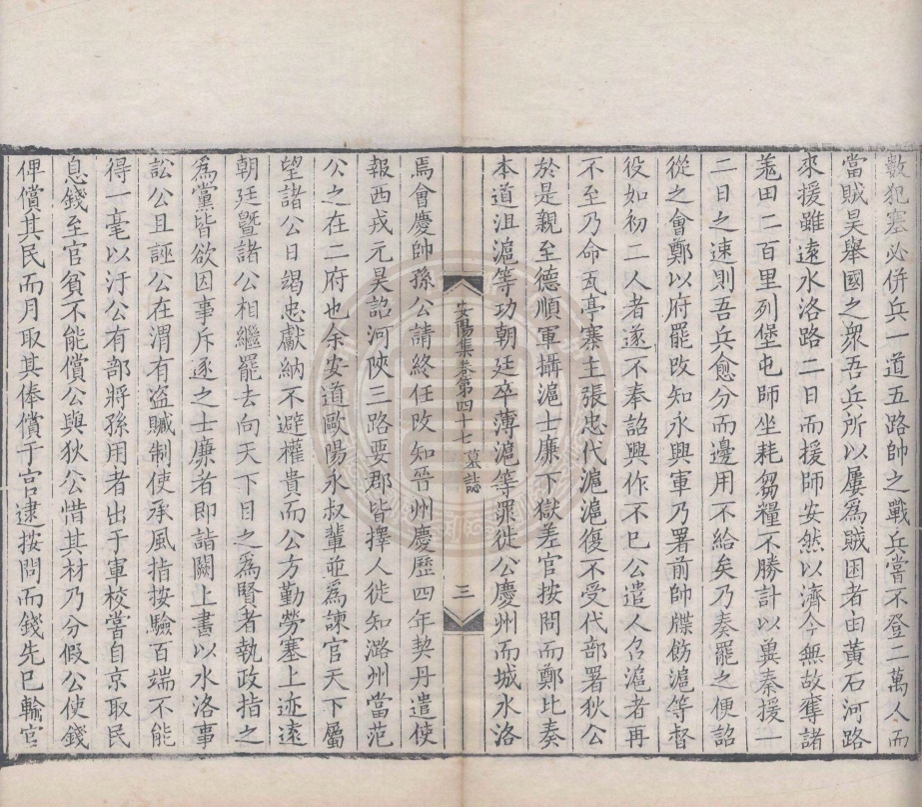 數犯塞必併兵一道五路帥之戰兵嘗不登二萬人而
當賊昊舉國之衆吾兵所以屢爲賊困者由黃石河路
來援雖遠水洛路二日而援師安然以濟今無故奪諸
羗田二百里列堡屯師坐耗芻糧不勝計以兾秦援一
二日之速則吾兵愈分而邊用不給矣乃奏罷之便詔
從之會鄭以府罷改知永興軍乃署前帥牒飭滬等督
役如初二人者遂不奉詔興作不已公遣人召滬者再
不至乃命瓦亭寨主張忠代滬滬復不受代部署狄公
於是親至德順軍攝滬士廉下獄差官按問而鄭比奏
本道沮滬等功朝廷卒薄滬等罪徙公慶州而城水洛
安陽集卷第四十七 墓誌 三
焉會慶帥孫公請終任改知晉州慶歷四年契丹遣使
報西戎元昊詔河陝三路要郡皆擇人徙知潞州當范
公之在二府也余安道歐陽永叔輩並爲諫官天下屬
望諸公日竭忠獻納不避權貴而公方勤勞塞上迹遠
朝廷暨諸公相繼罷去向天下目之爲賢者執政指之
爲黨皆欲因事斥逐之士廉者即詣闕上書以水洛事
訟公且誣公在渭有盗贓制使承風指按驗百端不能
得一毫以汙公有部將孫用者出于軍校嘗自京取民
息錢至官貧不能償公與狄公惜其材乃分假公使錢
俾償其民而月取其俸償于官逮按問而錢先已輸官